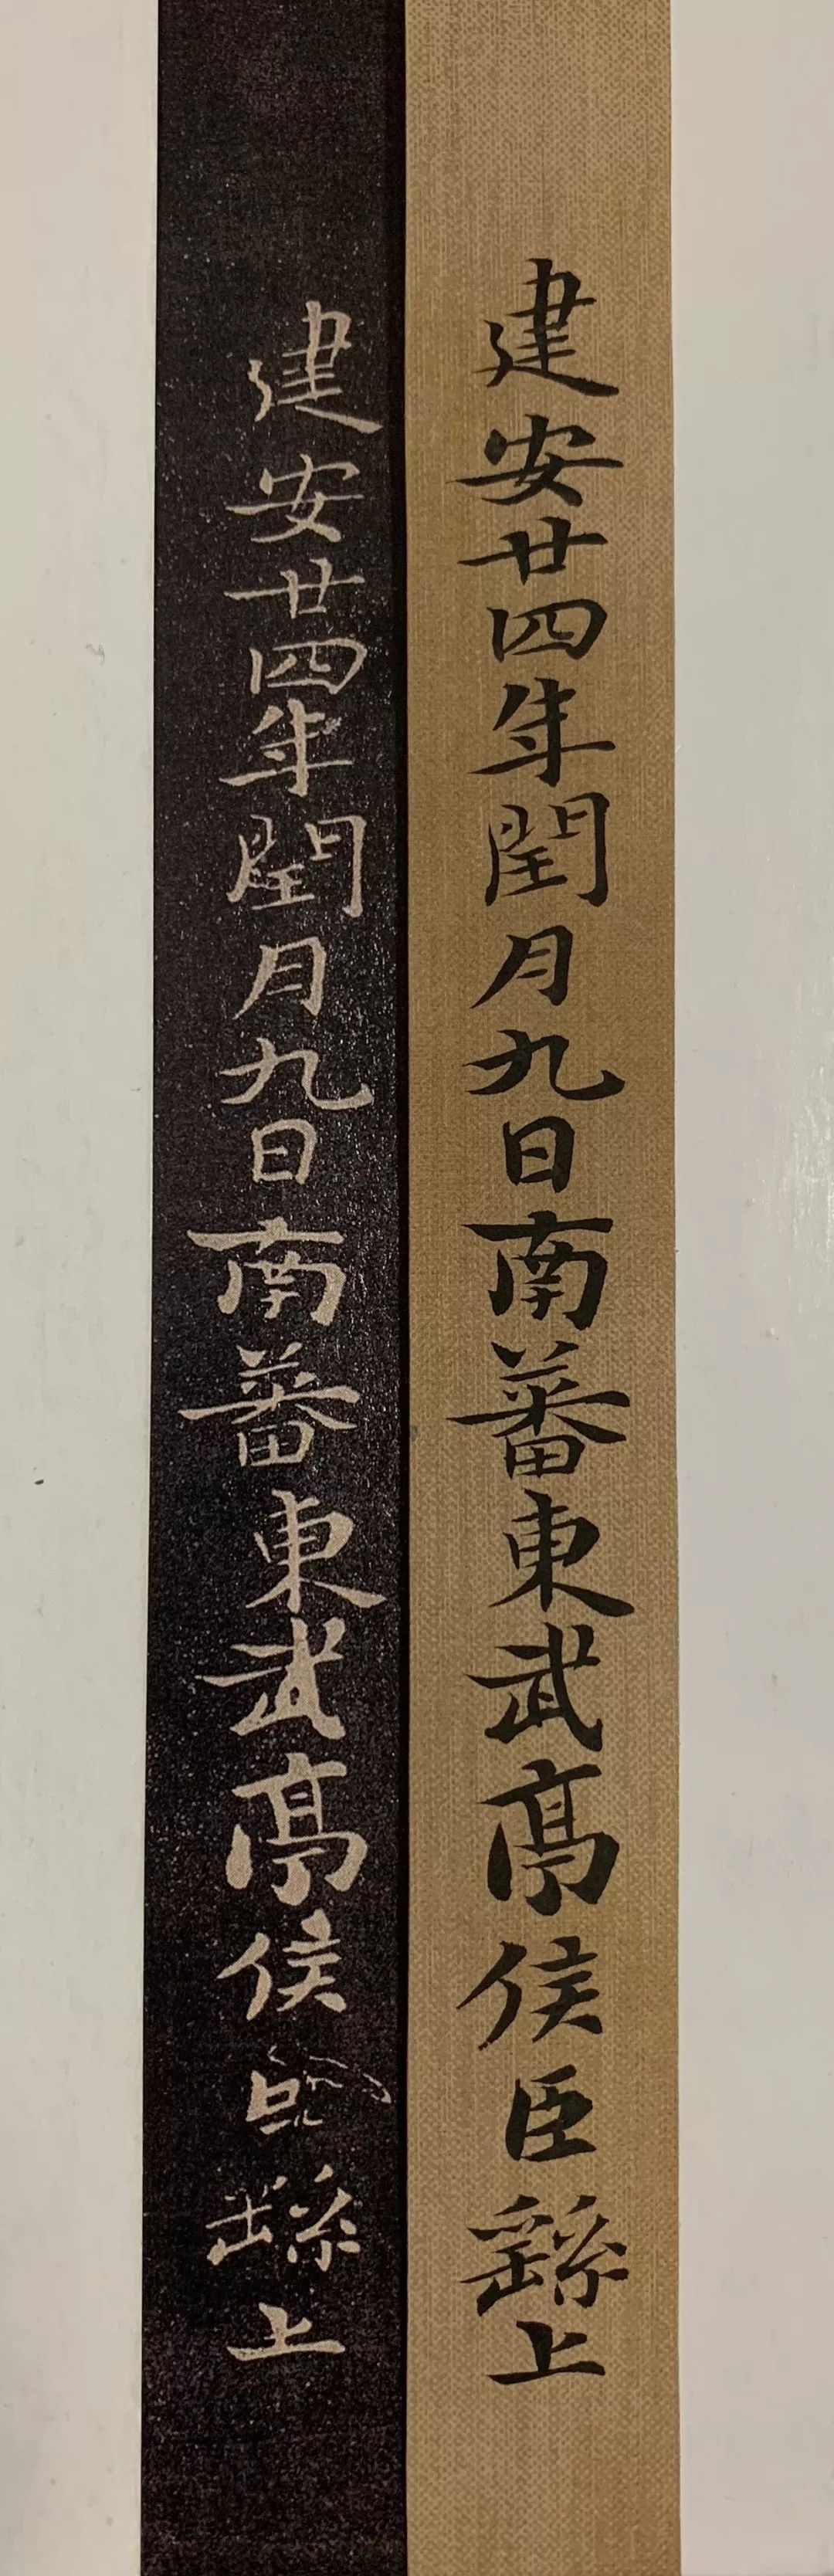 建安廿四年閏月九日南蕃東武亭侯臣繇上
建安廿四年閏月九日南蕃東武亭侯臣繇上